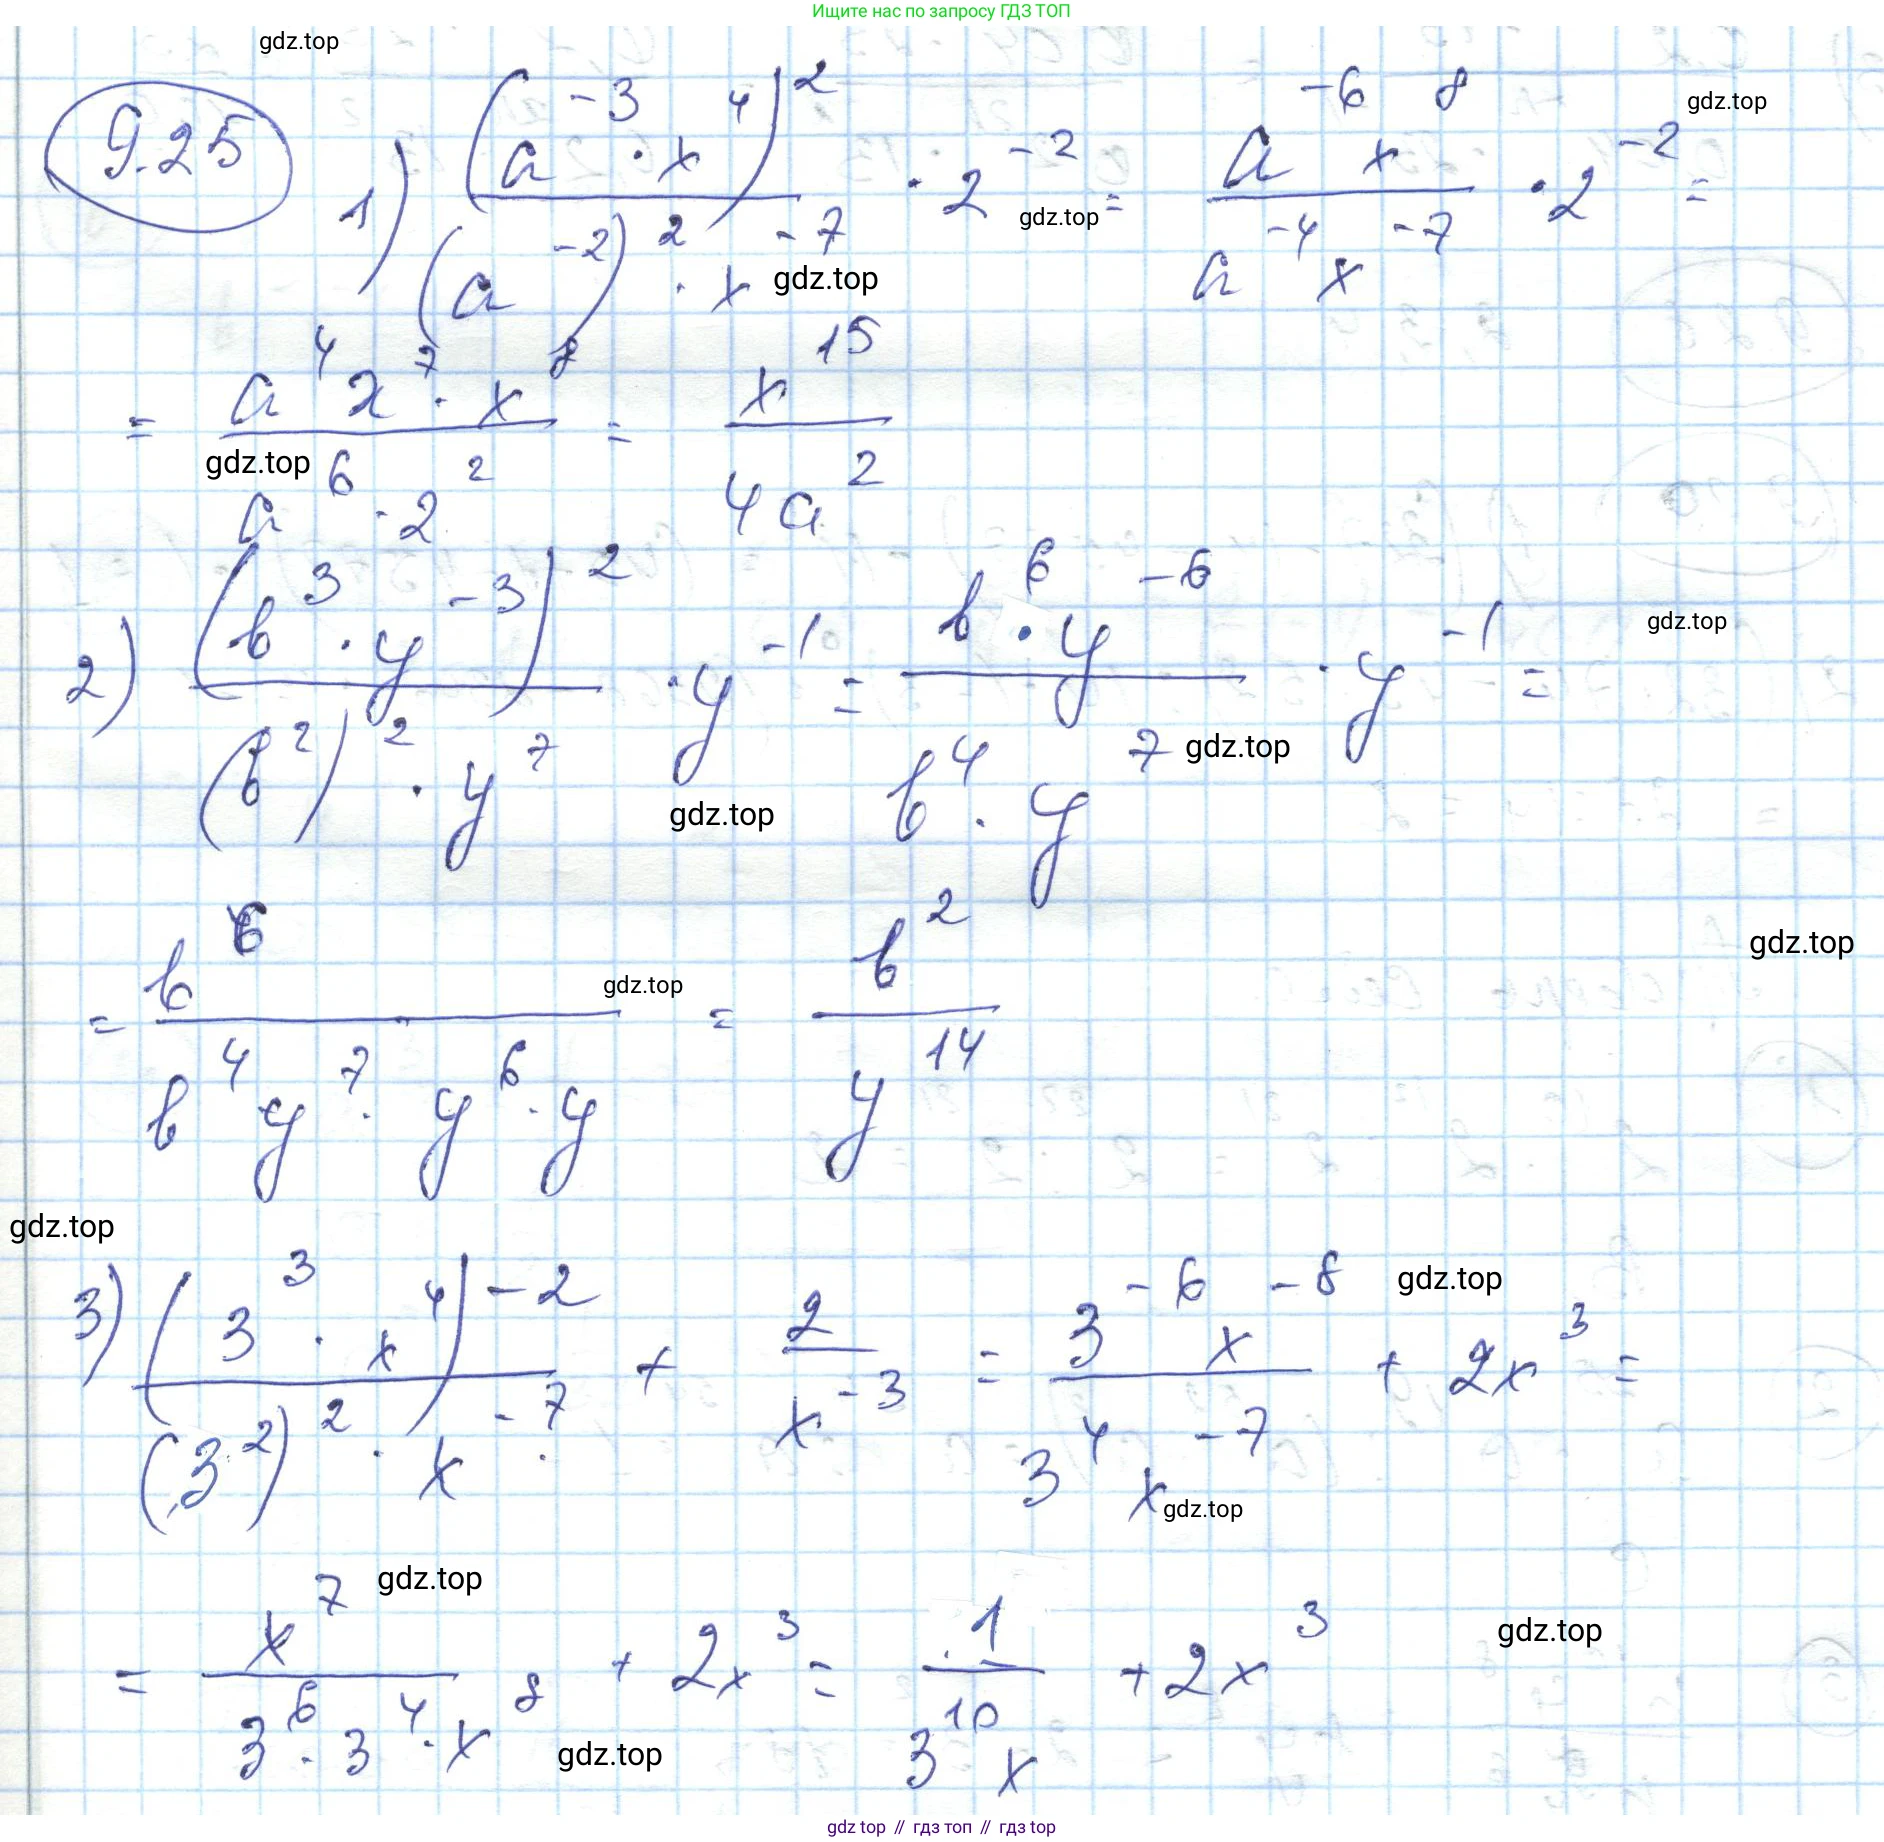 Ищите нас по запросу ГДЗ ТОП
gdz.top
9.25
1) (a^-3 · x^4)^2 / ((a^-2)^2 · x^-7) · 2^-2 = (a^-6 x^8) / (a^-4 x^-7) · 2^-2 =
gdz.top
gdz.top
gdz.top
= (a^4 x^7 · x^8) / (a^6 · 2^2) = x^15 / (4a^2)
gdz.top
2) (b^3 · y^-3)^2 / ((b^2)^2 · y^7) · y^-1 = (b^6 · y^-6) / (b^4 · y^7) · y^-1 =
gdz.top
gdz.top
gdz.top
= b^6 / (b^4 y^7 · y^6 · y) = b^2 / y^14
gdz.top
gdz.top
gdz.top
3) (3^3 · x^4)^-2 / ((3^2)^2 · x^-7) + 2 / x^-3 = (3^-6 x^-8) / (3^4 x^-7) + 2x^3 =
gdz.top
gdz.top
= x^7 / (3^6 · 3^4 · x^8) + 2x^3 = 1 / (3^10 x) + 2x^3
gdz.top
gdz.top
gdz.top
gdz top // гдз топ // гдз top